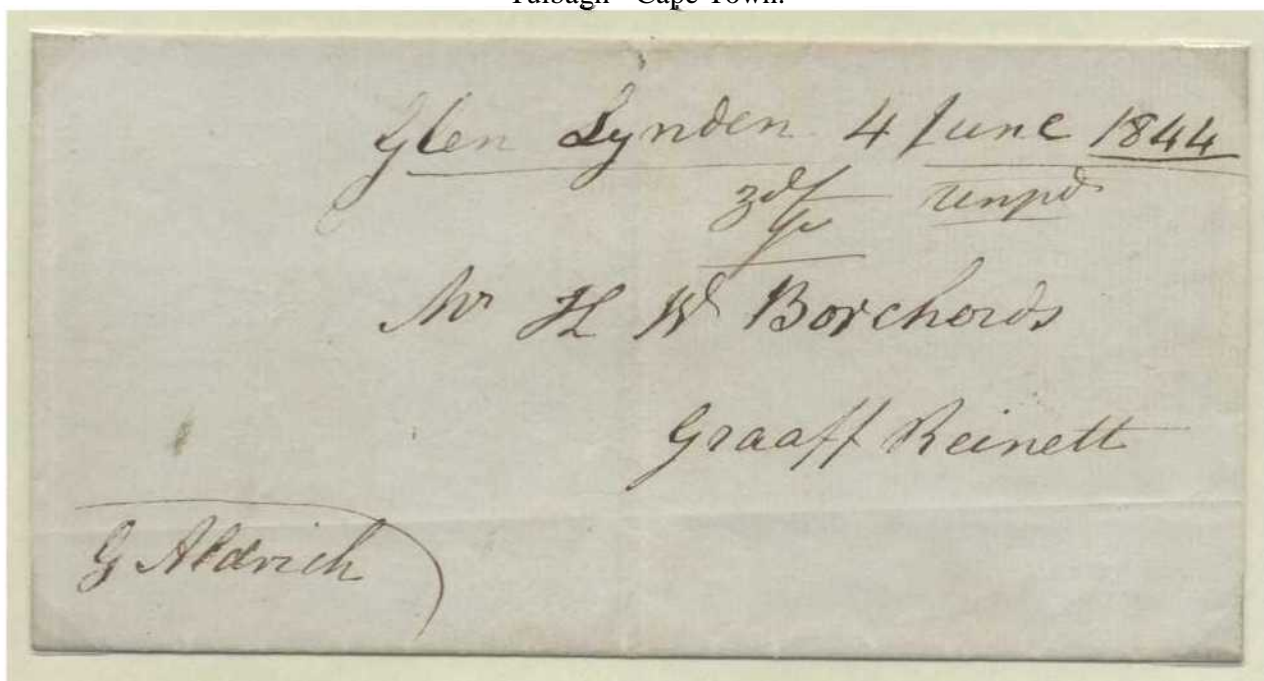 Tulbagh - Cape Town.
Glen Lynden 4 June 1844
unpd
Mr H W Borchords
Graaff Reinett
G Aldrich